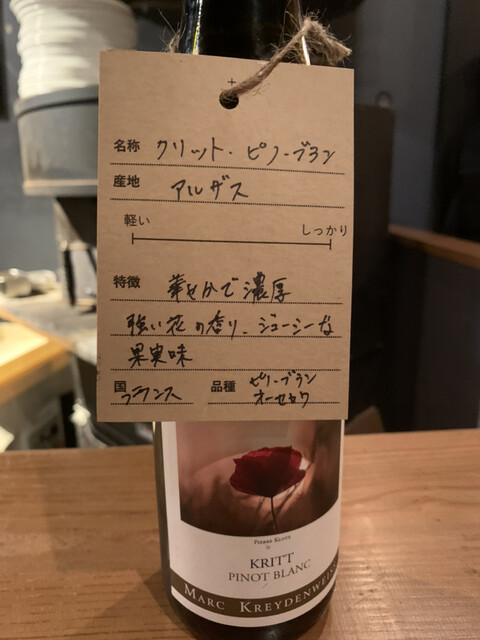 名称 クリット・ピノ・ブラン
産地 アルザス
軽い しっかり
特徴 華やかで濃厚
強い花の香り、ジューシーな
果実味
国 フランス 品種 ピノ・ブラン
オーセロワ
PIERRE KLOTZ
KRITT
PINOT BLANC
MARC KREYDENWEISS